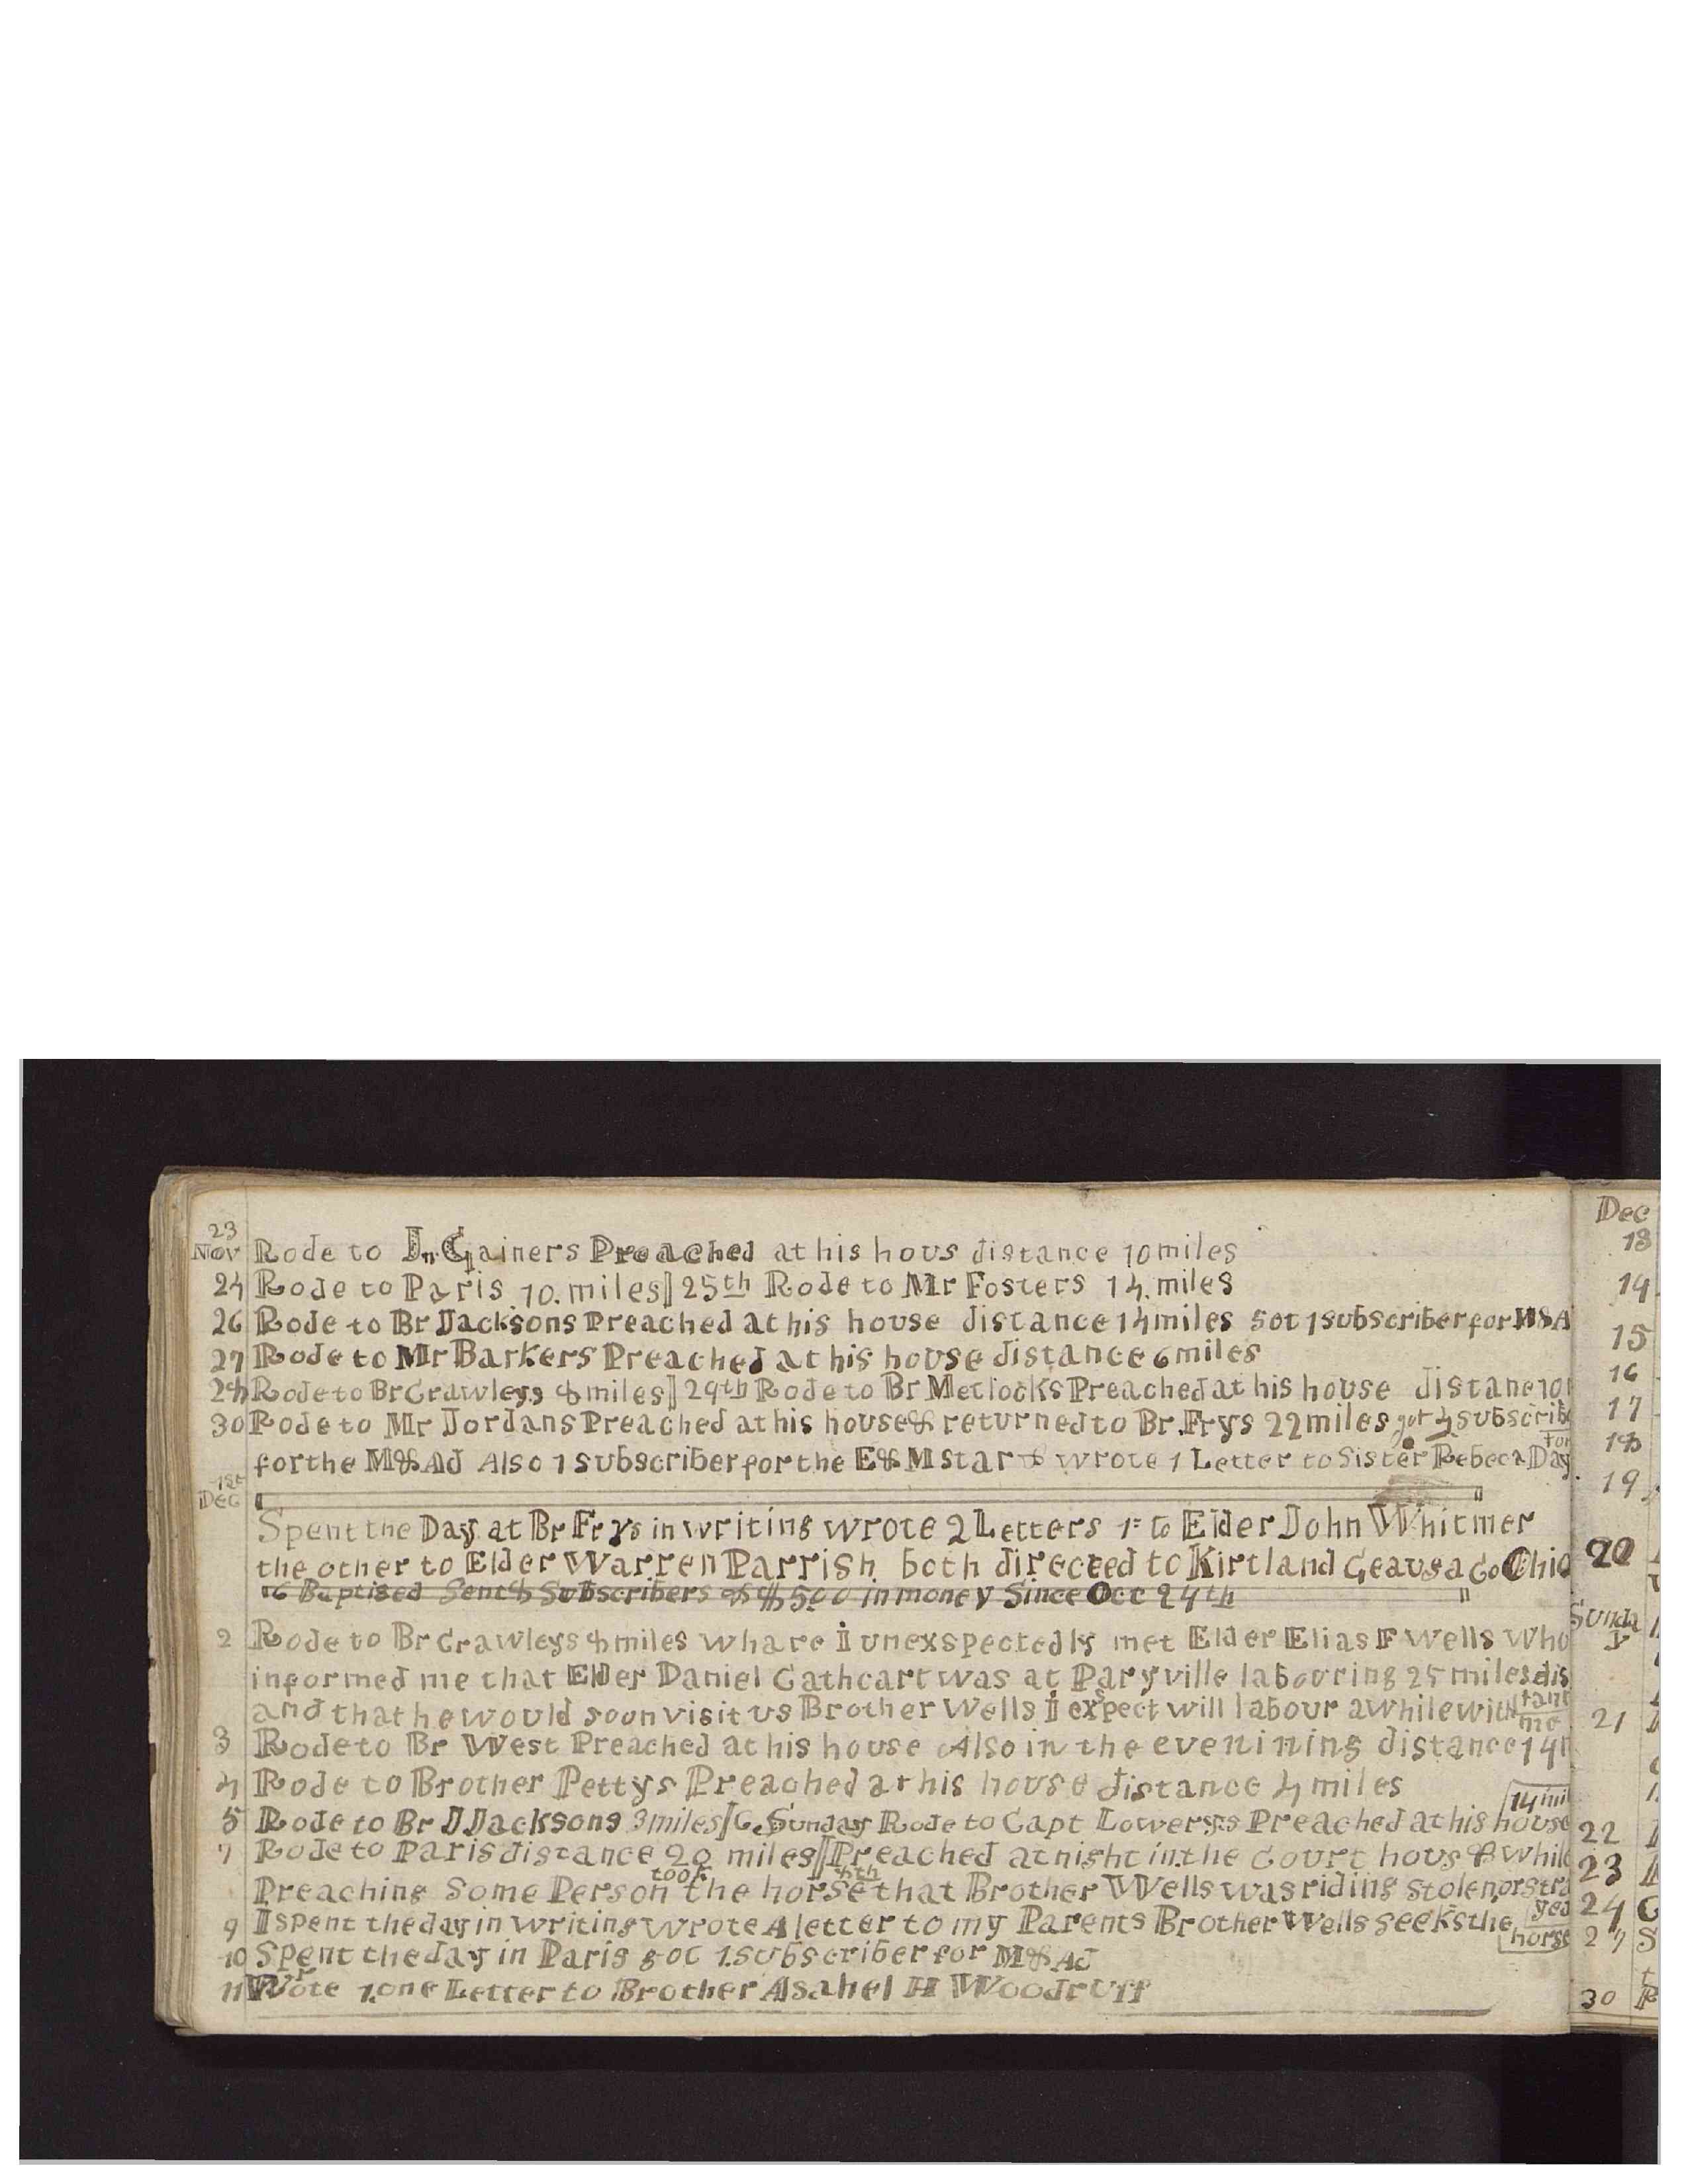 23
Nov Rode to Jn Gainers Preached at his hous distance 10 miles
24 Rode to Paris 10. miles || 25th Rode to Mr Fosters 14. miles
26 Rode to Br Jacksons Preached at his house distance 14 miles got 1 subscriber for M&A
27 Rode to Mr Barkers Preached at his house distance 6 miles
28 Rode to Br Crawleys 8 miles || 29th Rode to Br Metlocks Preached at his house distane 10
30 Rode to Mr Jordans Preached at his house & returned to Br. Frys 22 miles got 4 subscribe
for the M&Ad Also 1 subscriber for the E&M star & wrote 1 Letter to Sister Rebeca Day
ton
1st
Dec
Spent the Day at Br Frys in writing wrote 2 Letters 1= to Elder John Whitmer
the other to Elder Warren Parrish both directed to Kirtland Geauga Co Ohio
6 Baptised Sent 8 Subscribers & $5.00 in money Since Oct 24th
2 Rode to Br Crawleys 8 miles whare I unexspectedly met Elder Elias F Wells Who
informed me that Elder Daniel Cathcart was at Paryville labouring 25 miles dis
tant
and that he would soon visit us Brother Wells I exspect will labour a while with
me
3 Rode to Br West Preached at his house Also in the evenining distance 14
4 Rode to Brother Pettys Preached at his house distance 4 miles
14 mil
5 Rode to Br J Jacksons 3 miles || 6 Sunday Rode to Capt Lowerys Preached at his house
7 Rode to Paris distance 20 miles || Preached at night in the Court hous & while
took 8th
Preaching Some Person the horse that Brother Wells was riding Stolen or stra
yed
9 I spent the day in writing wrote A letter to my Parents Brother Wells seeks the
horse
10 Spent the day in Paris got 1. subscriber for M&Ad
11 Wrote 1. one Letter to Brother Asahel H Woodruff
Dec
13
14
15
16
17
18
19
20
Sunda
y
21
22
23
24
27 S
30 R